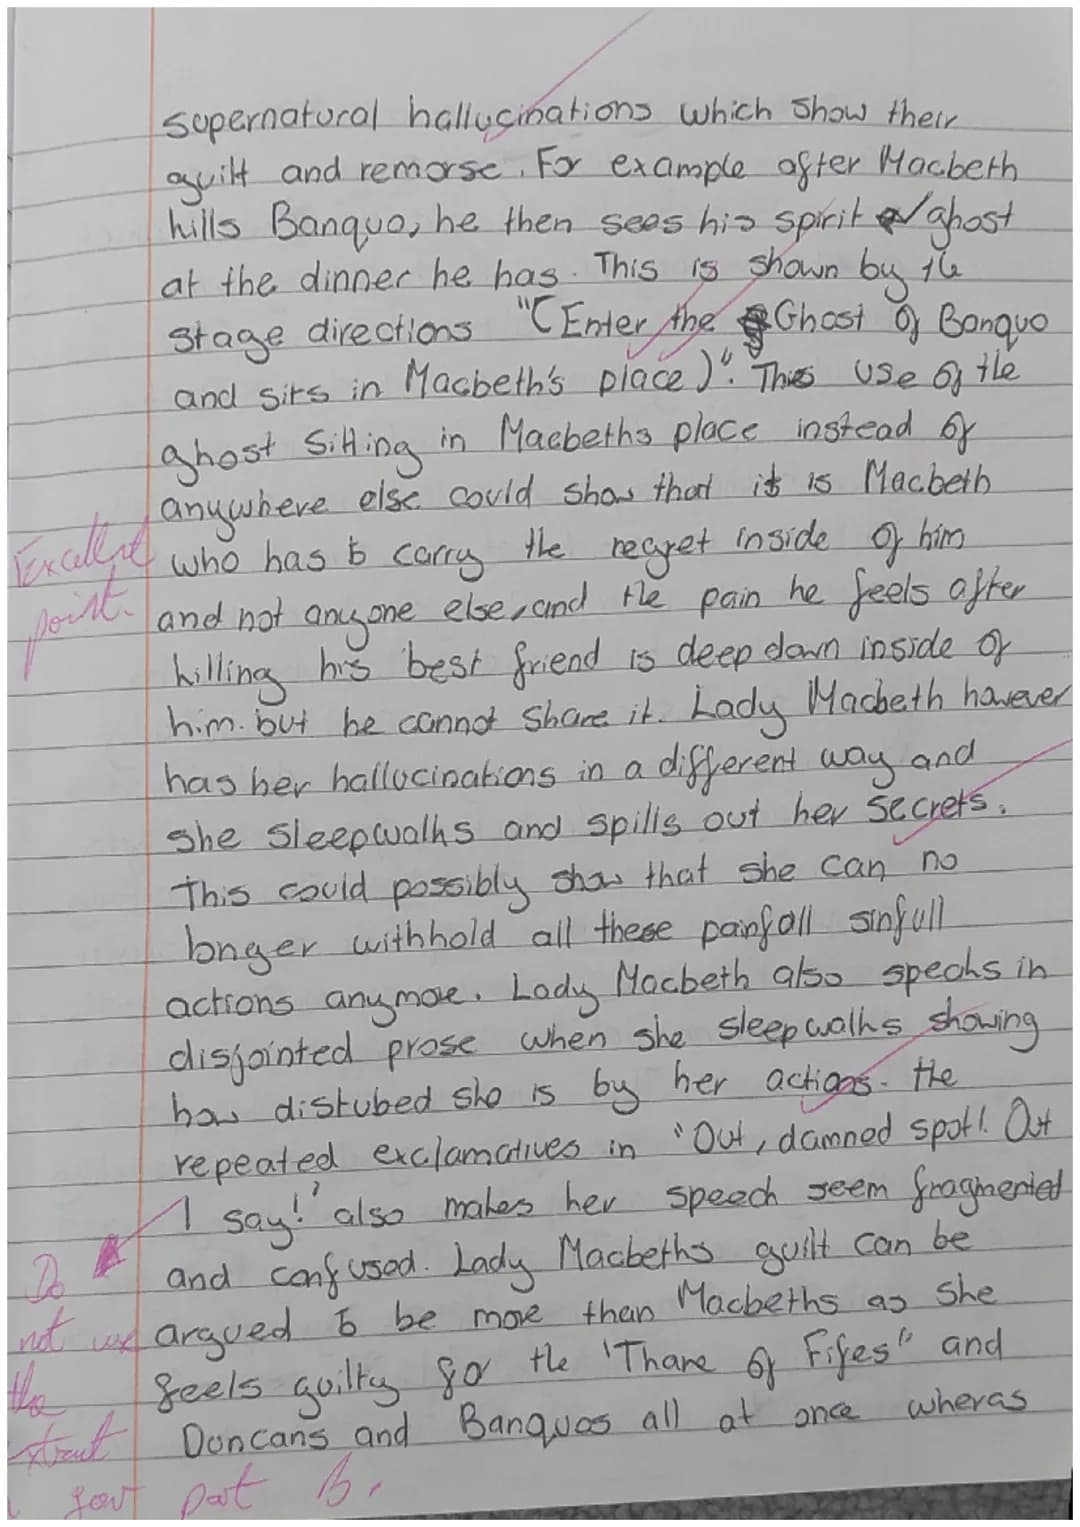 supernatural hallucinations which show their
guilt and remorse. For example after Macbeth
kills Banquo, he then sees his spirit / ghost
at the dinner he has. This is shown by the
stage directions "(Enter the Ghost of Banquo
and sits in Macbeth's place)". This use of the
ghost sitting in Macbeths place instead of
anywhere else could show that it is Macbeth
Excellent
point.
who has to carry the regret inside of him
and not anyone else, and the pain he feels after
killing his best friend is deep down inside of
him. but he cannot share it. Lady Macbeth however
has her hallucinations in a different way and
she sleepwalks and spills out her secrets.
This could possibly show that she can no
longer withhold all these painfull sinfull
actions anymore. Lady Macbeth also speaks in
disjointed prose when she sleepwalks showing
how distubed she is by her actions. the
repeated exclamatives in 'Out, damned spot! Out
I say!' also makes her speech seem fragmented
and confused. Lady Macbeths guilt can be
argued to be more than Macbeths as she
feels guilty for the 'Thane of Fifes" and
Duncans and Banquos all at once wheras
Do
not use
the
extract
for part B.